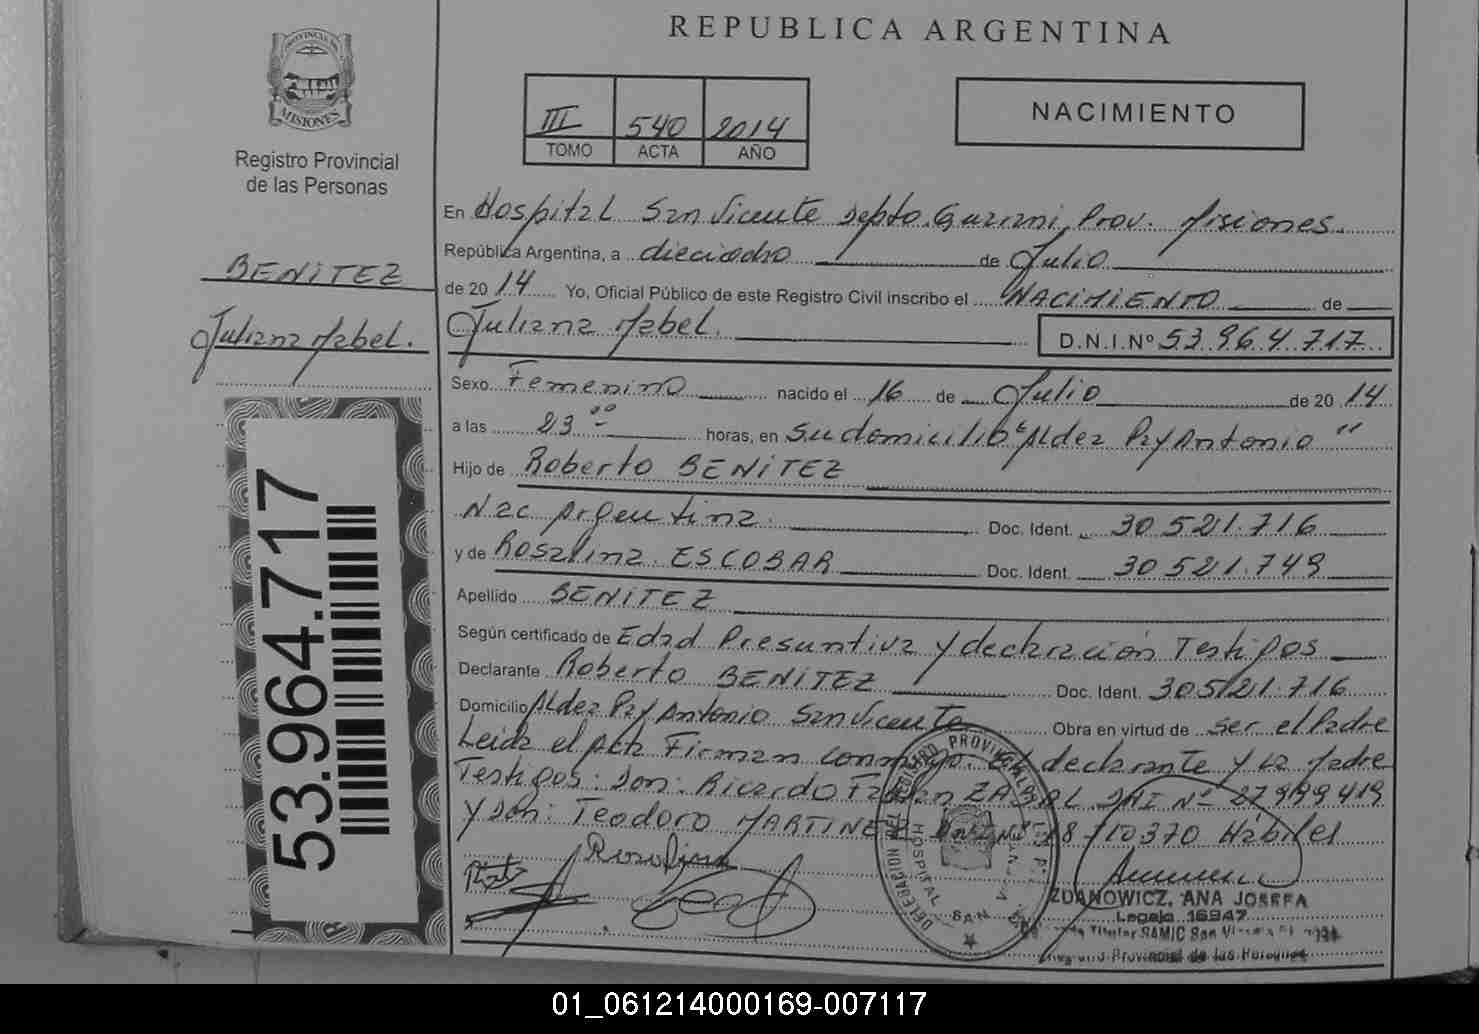 REPUBLICA ARGENTINA
PROVINCIA DE
MISIONES
Registro Provincial
de las Personas
III 540 2014
TOMO ACTA AÑO
NACIMIENTO
BENITEZ
Juliana Mabel.
53.964.717
En Hospital San Vicente Depto. Guarani, Prov. Misiones.
República Argentina, a dieciocho de Julio
de 2014 Yo, Oficial Público de este Registro Civil inscribo el NACIMIENTO de
Juliana Mabel. D.N.I.Nº 53.964.717
Sexo Femenino nacido el 16 de Julio de 2014
a las 23ºº horas, en su domicilio "Aldea Pay Antonio"
Hijo de Roberto BENITEZ
Nac Argentina. Doc. Ident. 30.521.716
y de Rosalina ESCOBAR Doc. Ident. 30.521.749
Apellido BENITEZ
Según certificado de Edad Presuntiva y declaración Testigos
Declarante Roberto BENITEZ Doc. Ident. 30.521.716
Domicilio Aldea Pay Antonio San Vicente Obra en virtud de ser el Padre
Leida el Acta Firman conmigo el declarante y la Madre
Testigos: Don: Ricardo DNI Nº 27999419
y Don: Teodoro MARTINEZ 18710370 Hábiles
Rosalina
DELEGACION DEL REGISTRO PROVINCIAL DE LAS
HOSPITAL SAN
ZDANOWICZ, ANA JOSEFA
Legajo 16947
Titular SAMIC San
Provincial de las Personas
01_061214000169-007117